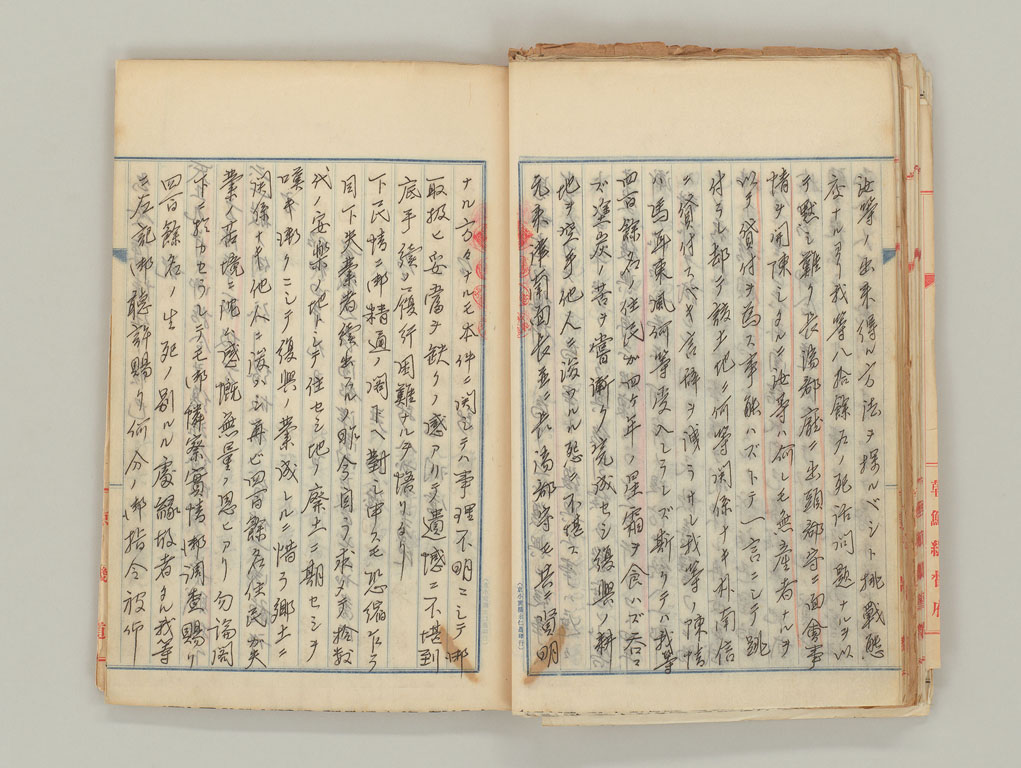 汝等ノ出来得ル方法ヲ採ルベシト挑戦態
度ナルヨリ我等八拾餘戸ノ死活問題ナルヲ以
テ黙シ難ク長湍郡廳ニ出頭郡守ニ面會事
情ヲ開陳シタルニ汝等ハ何レモ無産者ナルヲ
以テ貸付ヲ為ス事能ハズトテ一言ニシテ跳
付ラレ却テ該土地ニ何等関係ナキ朴南信
ニ貸付スベキ言辞ヲ
ハ馬耳東風何等受入レラレズ斯クテハ我等
四百餘名ノ住民ガ四ケ年ノ星霜ヲ食ハズ
ズ塗炭ノ苦ヲ嘗メ漸ク完成セシ復興ノ耕
地ヲ空手他人ニ渡ハルル怨ニ不堪ス
元来津南面長並ニ長湍郡守モ共ニ賢明
ナル方々ナルモ本件ニ関シテハ事理不明ニシテ
取扱ヒ妥當ヲ缺クノ感アリテ遺憾ニ不堪到
底手続ノ履行困難ナルヲ悟リタリ
下民情ニ御精通ノ閣下ヘ對シ申スモ恐縮ナカラ
目下失業者続出スルノ昨今自ラ求メテ
代ノ安樂ノ地トシテ住セシ地ノ廃土ニ期セシヲ
嘆キ漸クニシテ復興ノ業成レルニ惜ラ郷土ニ
関係ナキ他人ニ渡シ再ビ四百餘名住民ガ失
業ノ苦境ニ沈ム感慨無量ノ思ヒアリ勿論閣
下ニ於カセラレテモ御憐察實情御調査賜リ
四百餘名ノ生死ノ別ルル處縁故者タル我等
ニ左記御聴許賜リ何分ノ御指令被仰